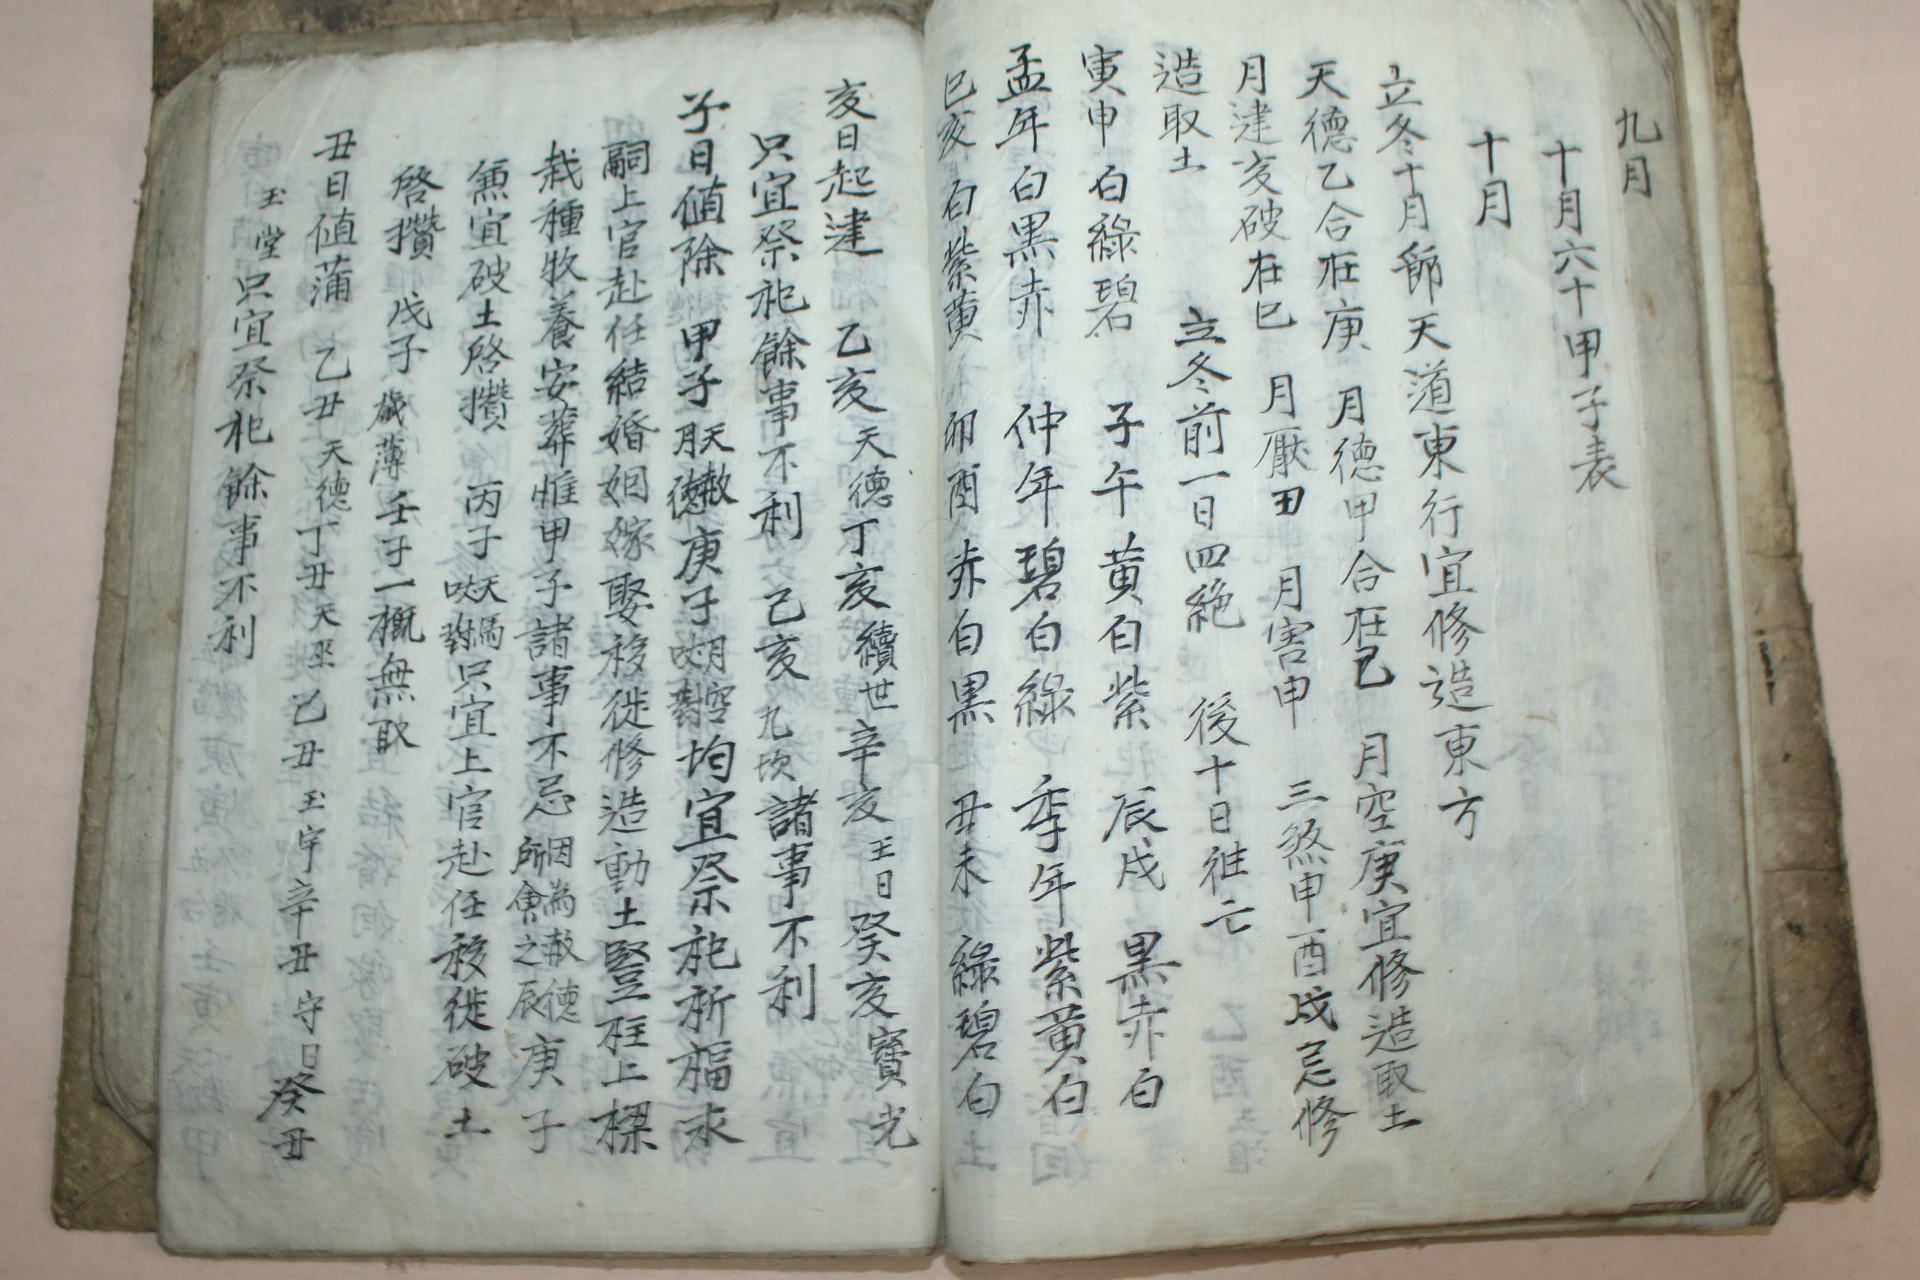 九月
十月六十甲子表
十月
立冬十月節天道東行宜修造東方
天德乙合在庚 月德甲合在己 月空庚宜修造取土
月建亥破在巳 月厭丑 月害申 三煞申酉戌忌修
造取土 立冬前一日四絶 後十日往亡
寅申 白綠碧 子午 黃白紫 辰戌 黑赤白
孟年白黑赤 仲年碧白綠 季年紫黃白
巳亥 白紫黃 卯酉 赤白黑 丑未 綠碧白
亥日起建 乙亥 天德 丁亥 續世 辛亥 王日 癸亥 寶光
只宜祭祀餘事不利 己亥 九坎 諸事不利
子日値除 甲子 天赦月德 庚子 月空 均宜祭祀祈福求
嗣上官赴任結婚姻嫁娶移徙修造動土竪柱上樑
栽種牧養安葬惟甲子諸事不忌 因為赦德所會之辰 庚子
兼宜破土啓攢 丙子 只宜上官赴任移徙破土
啓攢 戊子 歲薄 壬子一槪無取
丑日値蒲 乙丑 天德 丁丑 天巫 己丑 玉宇 辛丑 守日 癸丑
玉堂 只宜祭祀餘事不利